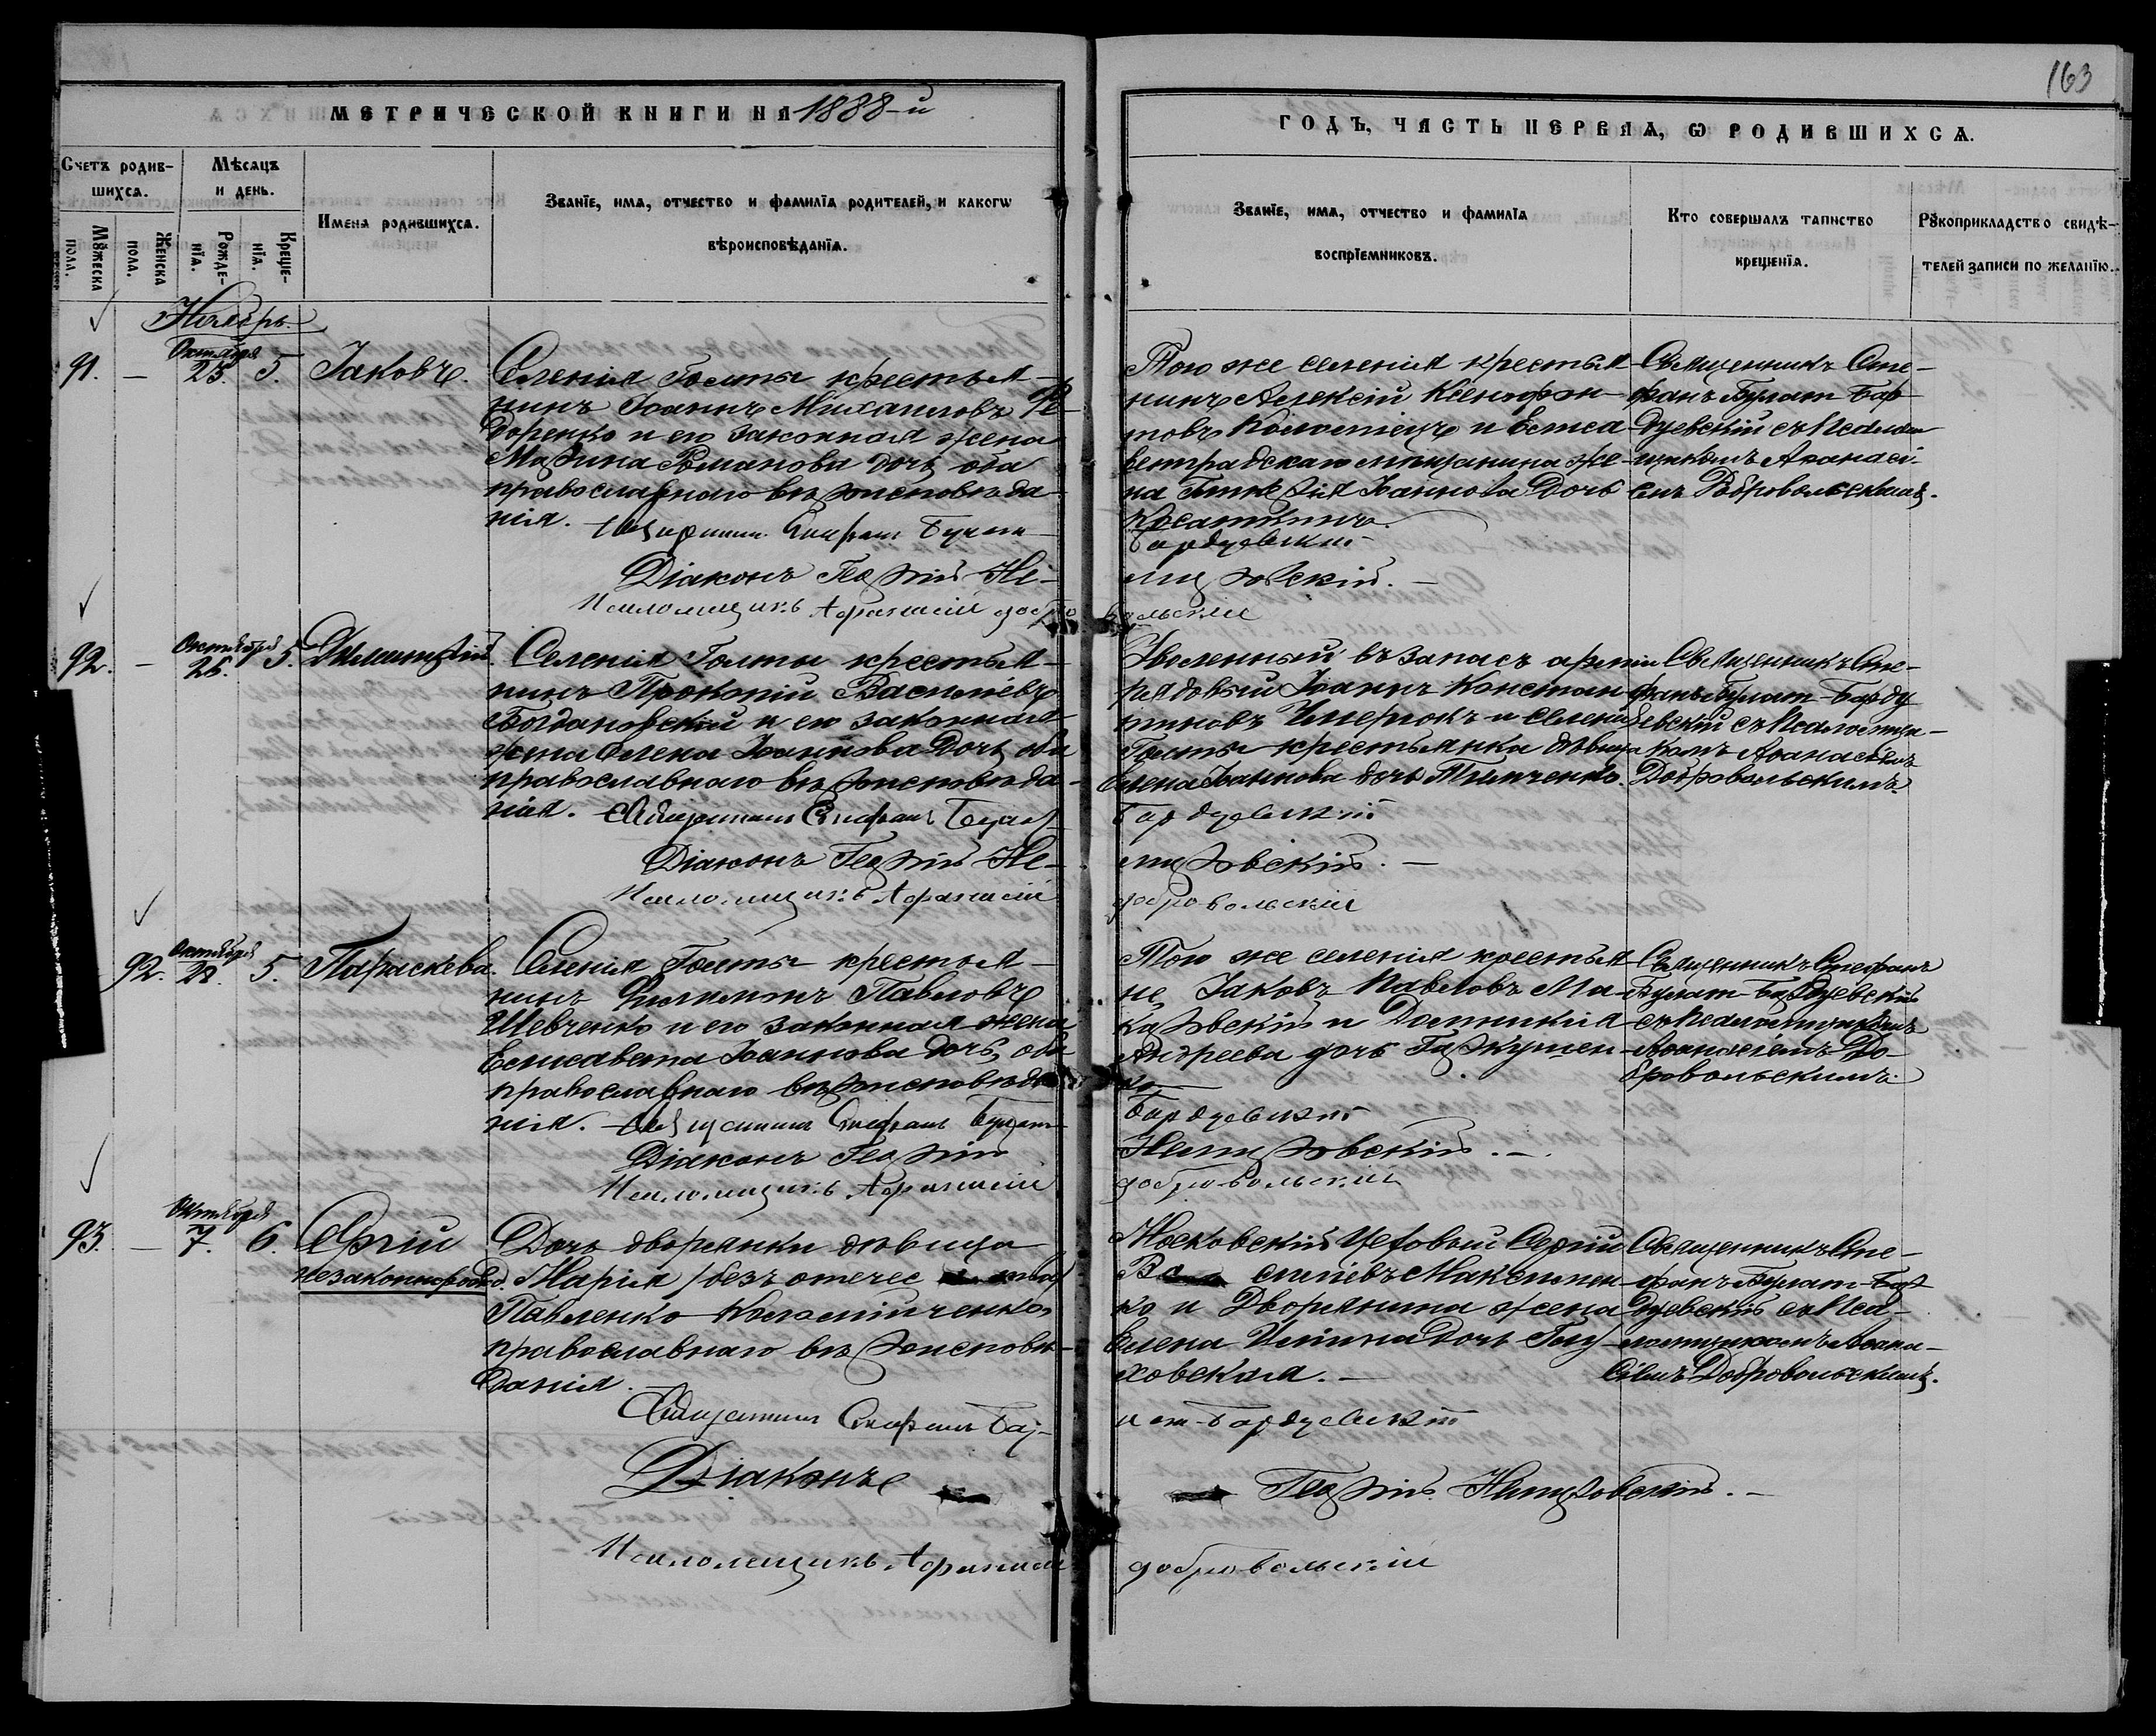 163
МЕТРИЧЕСКОЙ КНИГИ НА 1888-й
ГОДЪ, ЧАСТЬ ПЕРВАЯ, Ѡ РОДИВШИХСЯ.
Счетъ родив-
шихся.
Мѣсяцъ
и день.
Мꙋжеска
пола.
Женска
пола.
Рожде-
нїя.
Креще-
нїя.
Имена родившихся.
Званїе, имя, отчество и фамилїя родителей, и какогѡ
вѣроисповѣданїя.
Званїе, имя, отчество и фамилїя
воспрїемниковъ.
Кто совершалъ таинство
крещенїя.
Рꙋкоприкладство свидѣ-
телей записи по желанїю.
Ноябрь.
91.
—
Октября
23.
5.
Іаковъ.
Селенія Голты крестья-
нинъ Іоаннъ Михаиловъ Фе-
доренко и его законная жена
Марина Романова дочь, оба
православнаго вѣроисповѣда-
нія. Священникъ Стефанъ Булат-
Діаконъ Георгій Не-
Псаломщикъ Афанасий добро
Того же селенія крестья-
нинъ Алексій Ксенофон-
товъ Коломіецъ и Елиса-
ветградскаго мѣщанина же-
на Іоаннова дочь
Бардуевскій
мировскій.—
вольский
Священникъ Сте-
фанъ Булат-Бар-
дуевскій съ Псалом-
щикомъ Аѳанасі-
емъ Добровольскимъ.
92.
—
Октября
26.
5.
Димитрій.
Селенія Голты крестья-
нинъ Прокопій Василіевъ
Богдановскій и его законная
жена Елена Іоаннова дочь, оба
православнаго вѣроисповѣда-
нія. Священникъ Стефанъ Булат-
Діаконъ Георгій Не-
Псаломщикъ Афанасий
Уволенный въ запасъ арміи
рядовый Іоаннъ Констан-
тиновъ и селенія
Голты крестьянка дѣвица
Елена Іоаннова дочь
Бардуевскій
мировскій.—
добровольский
Священникъ Сте-
фанъ Булат-Барду-
евскій съ Псаломщи-
комъ Аѳанасіемъ
Добровольскимъ.
92.
Октября
28.
5.
Параскева.
Селенія Голты крестья-
нинъ Филиппъ Павловъ
Шевченко и его законная жена
Елисавета Іоаннова дочь, оба
православнаго вѣроисповѣда-
нія. Священникъ Стефанъ Булат-
Діаконъ Георгій
Псаломщикъ Афанасий
Того же селенія крестья-
не, Іаковъ Павловъ Ма-
каровскій и Домникія
Андреева дочь Гаркушен-
ко
Бардуевскій
Немировскій.—
добровольский
Священникъ Стефанъ
Булат-Бардуевскій
съ Псаломщикомъ
Аѳанасіемъ До-
бровольскимъ.
93.
—
Октября
7.
6.
Сергій
незаконнорожд.
Дочь дворянки дѣвица
Марія /безъ отчества/
Павленко-Коломійченко,
православнаго вѣроисповѣ-
данія.
Священникъ Стефанъ Бул-
Діаконъ
Псаломщикъ Афанасий
Московскій Цеховый Сергій
Василіевъ Максимен-
ко и Дворянина жена
Елена Иліина дочь Глу-
ховская.—
ат-Бардуевскій
Георгій Немировскій.—
добровольский
Священникъ Сте-
фанъ Булат-Бар-
дуевскій съ Пса-
ломщикомъ Аѳана-
сіемъ Добровольскимъ.